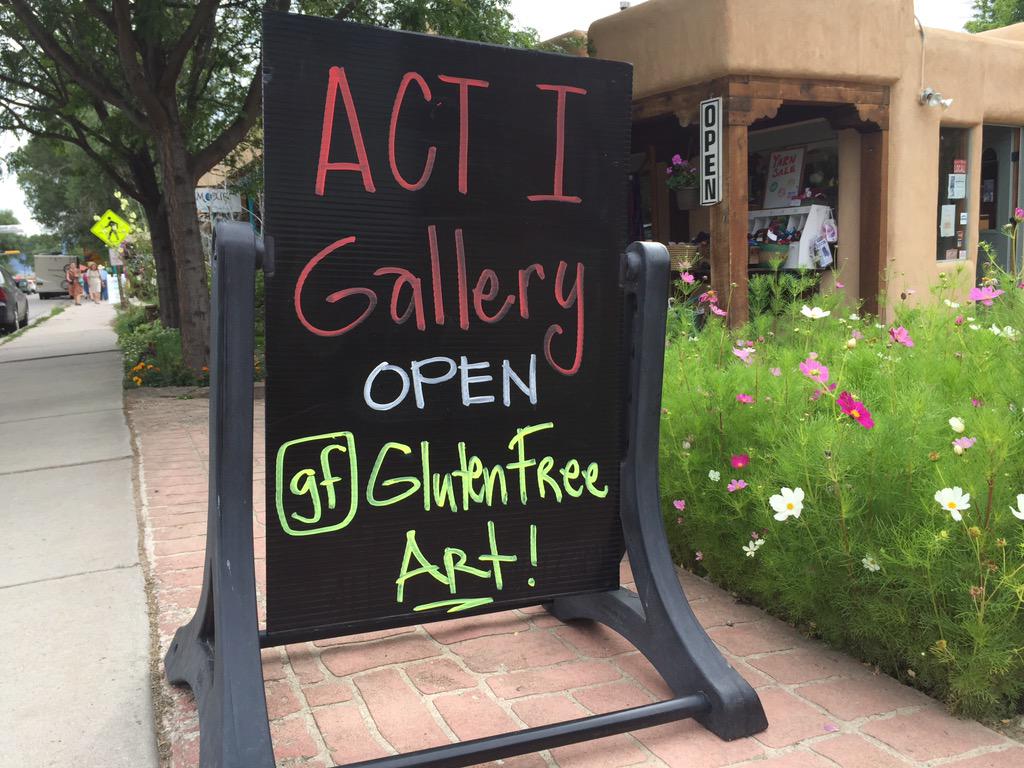 ACT I
Gallery
OPEN
gf GlutenFree
ART!
OPEN
YARN
SALE